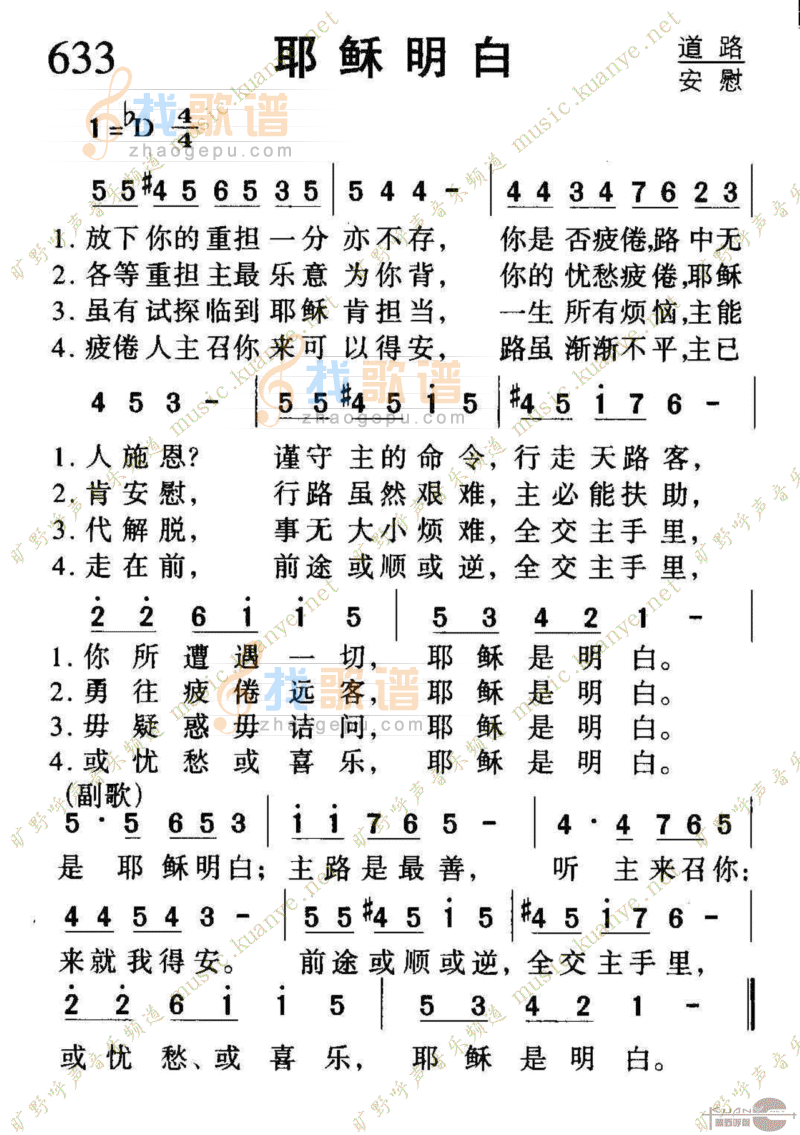 633 耶稣明白 道路
安慰
1=♭D 4/4
5 5 #4 5 6 5 3 5 | 5 4 4 - | 4 4 3 4 7 6 2 3
1. 放下你的重担一分亦不存， 你是否疲倦,路中无
2. 各等重担主最乐意为你背， 你的忧愁疲倦,耶稣
3. 虽有试探临到耶稣肯担当， 一生所有烦恼,主能
4. 疲倦人主召你来可以得安， 路虽渐渐不平,主已
4 5 3 - | 5 5 #4 5 i 5 | #4 5 i 7 6 -
1. 人施恩? 谨守主的命令，行走天路客，
2. 肯安慰， 行路虽然艰难，主必能扶助，
3. 代解脱， 事无大小烦难，全交主手里，
4. 走在前， 前途或顺或逆，全交主手里，
2̇ 2̇ 6 i i 5 | 5 3 4 2 1 -
1. 你所遭遇一切， 耶稣是明白。
2. 勇往疲倦远客， 耶稣是明白。
3. 毋疑惑毋诘问， 耶稣是明白。
4. 或忧愁或喜乐， 耶稣是明白。
(副歌)
5 · 5 6 5 3 | i i 7 6 5 - | 4 · 4 7 6 5
是耶稣明白；主路是最善， 听主来召你：
4 4 5 4 3 - | 5 5 #4 5 i 5 | #4 5 i 7 6 -
来就我得安。 前途或顺或逆，全交主手里，
2̇ 2̇ 6 i i 5 | 5 3 4 2 1 - ‖
或忧愁、或喜乐， 耶稣是明白。
找歌谱
zhaogepu.com
找歌谱
zhaogepu.com
找歌谱
zhaogepu.com
旷野呼声音乐频道 music.kuanye.net